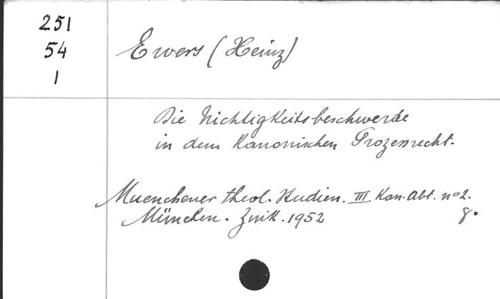 251
54
1
Ewers (Heinz)
Die Nichtigkeitsbeschwerde
in dem Kanonischen Prozessrecht.
Muenchener theol. Studien. III Kan. Abt. nº2.
München. Zink. 1952 8.